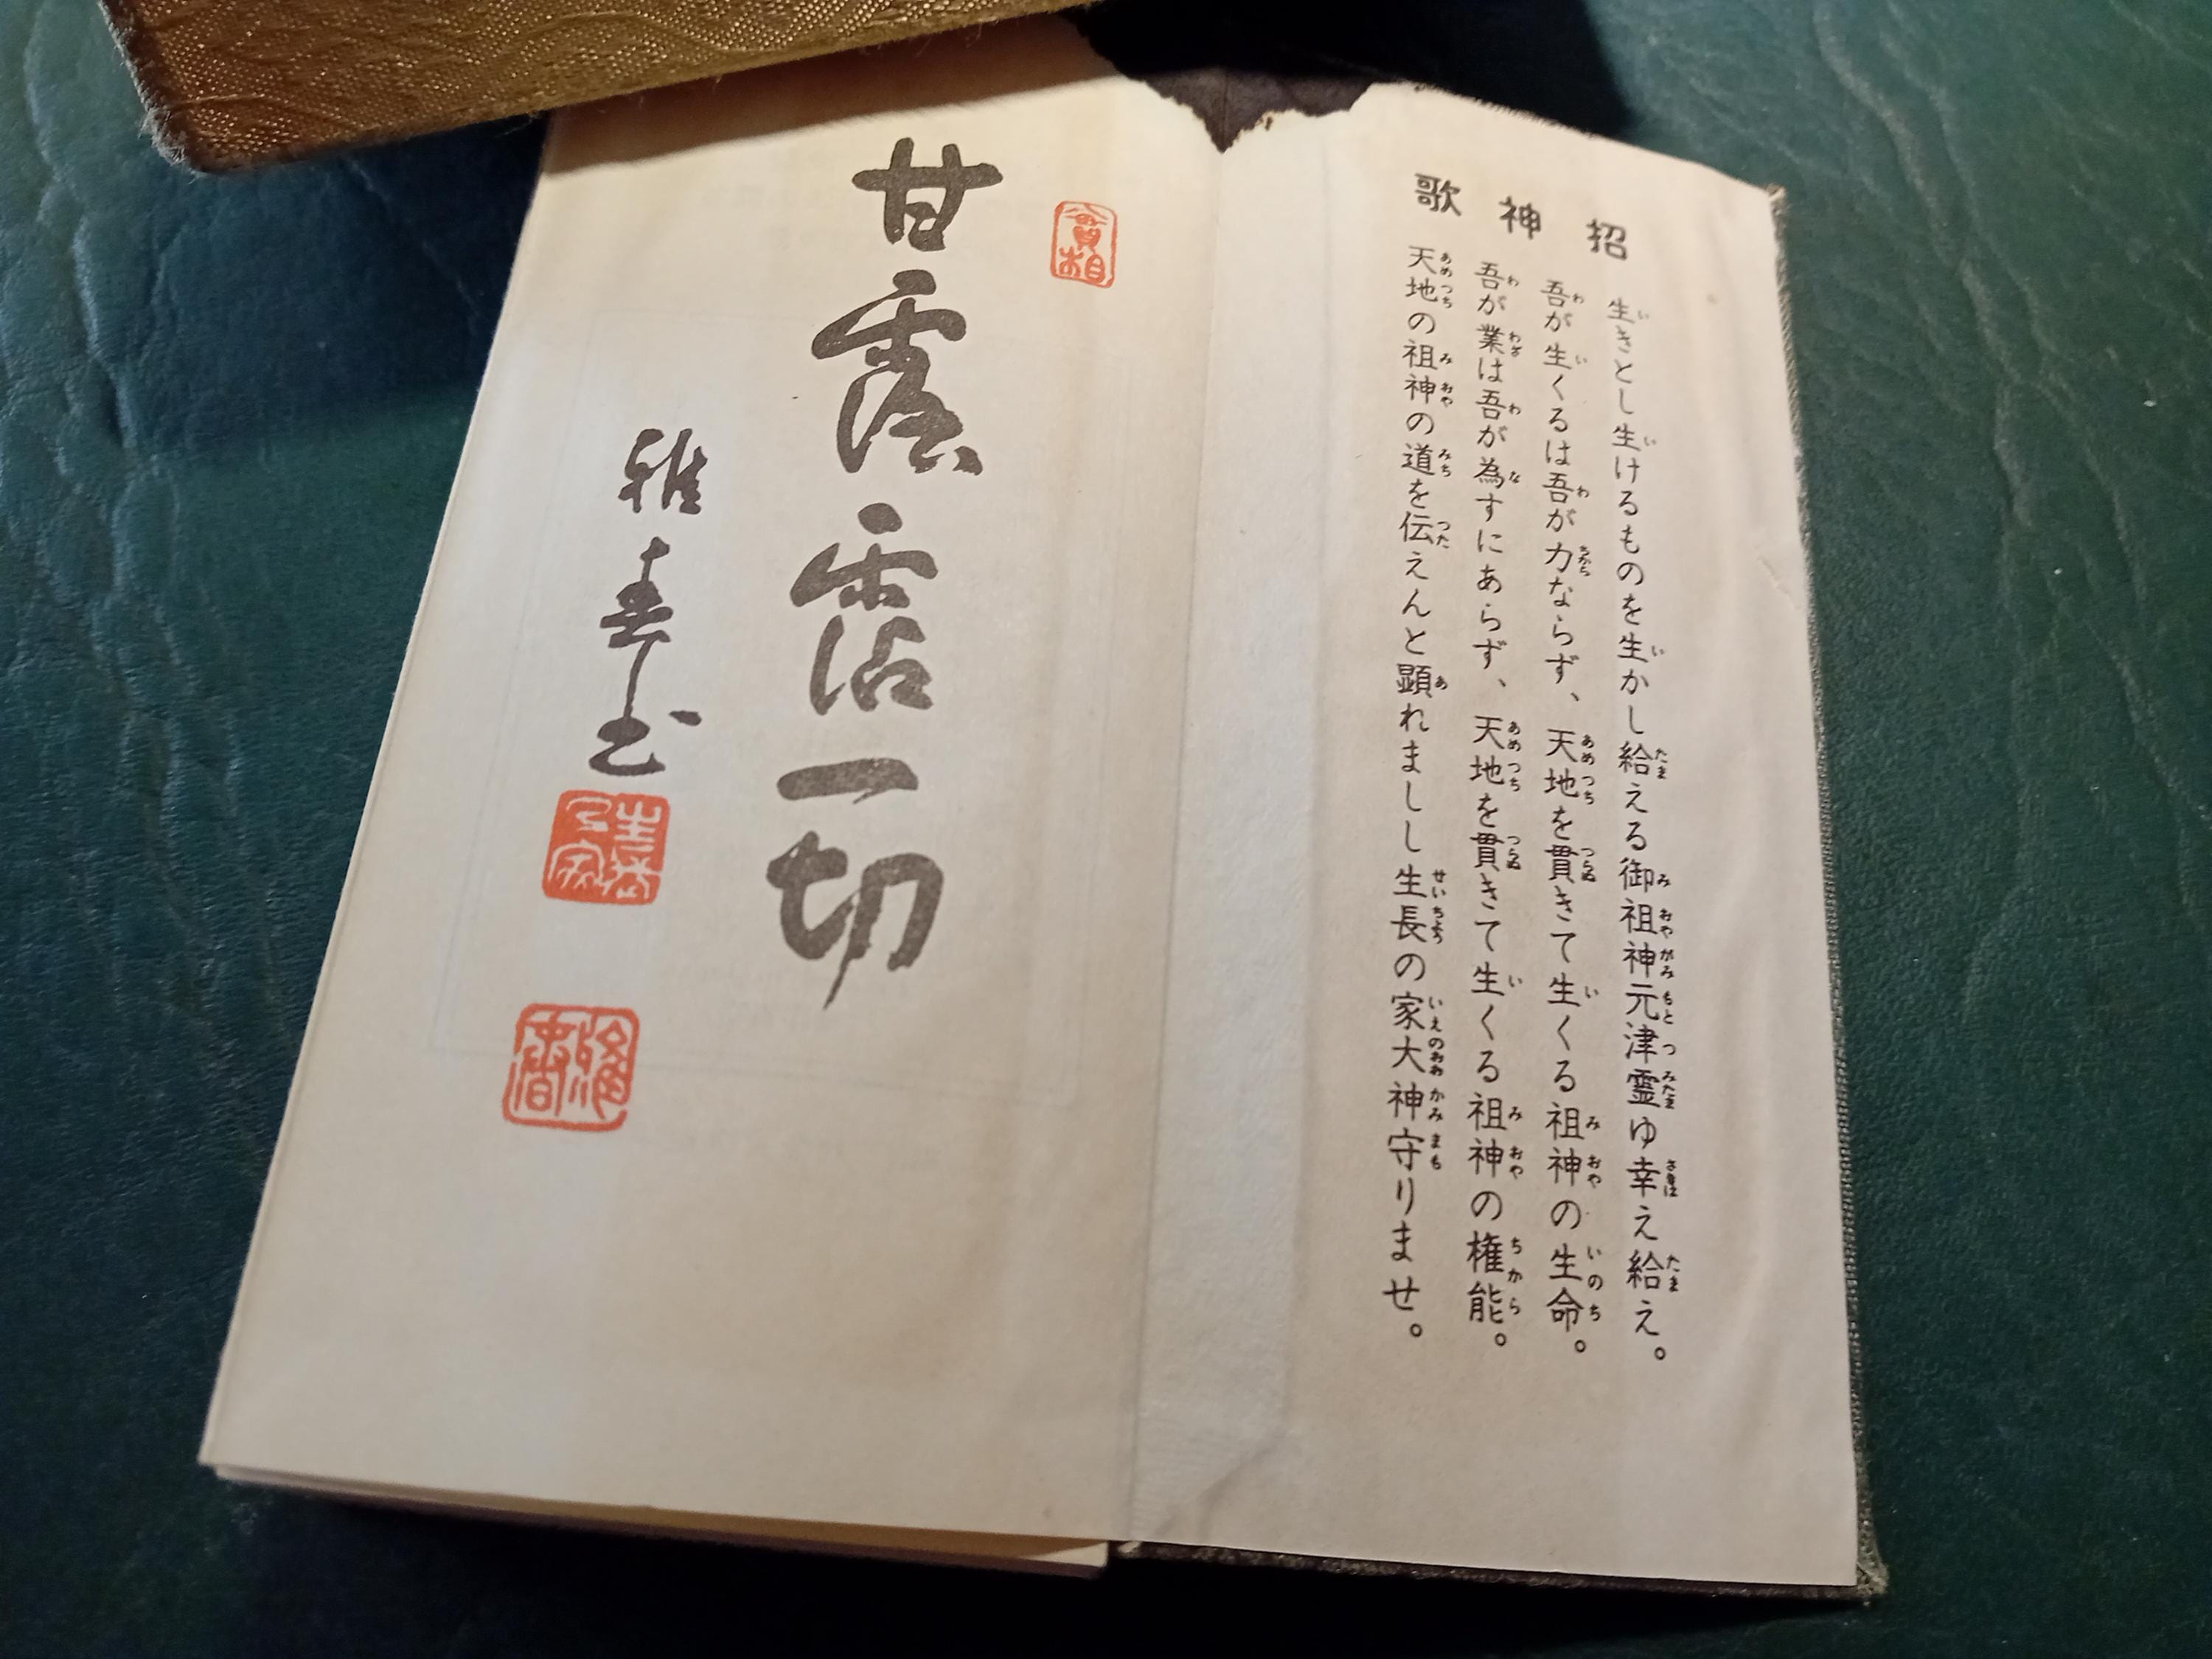 招神歌
生きとし生けるものを生かし給える御祖神元津霊ゆ幸え給え。
吾が生くるは吾が力ならず、天地を貫きて生くる祖神の生命。
吾が業は吾が為すにあらず、天地を貫きて生くる祖神の権能。
天地の祖神の道を伝えんと顕れましし生長の家大神守りませ。
實相
甘露霑一切
雅春书